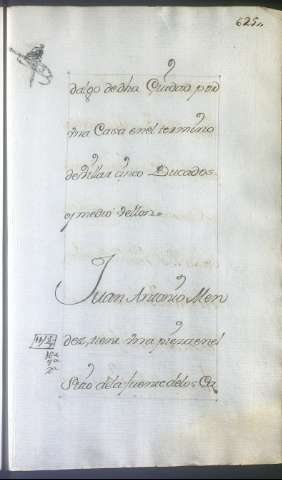 625,,
dalgo de dha Ciudad por
una Casa en el termino
de Millar cinco Ducados
y medio vellon.
Juan Antonio Men
dez, tiene una pieza en el
Sitio de la fuente de los Ca